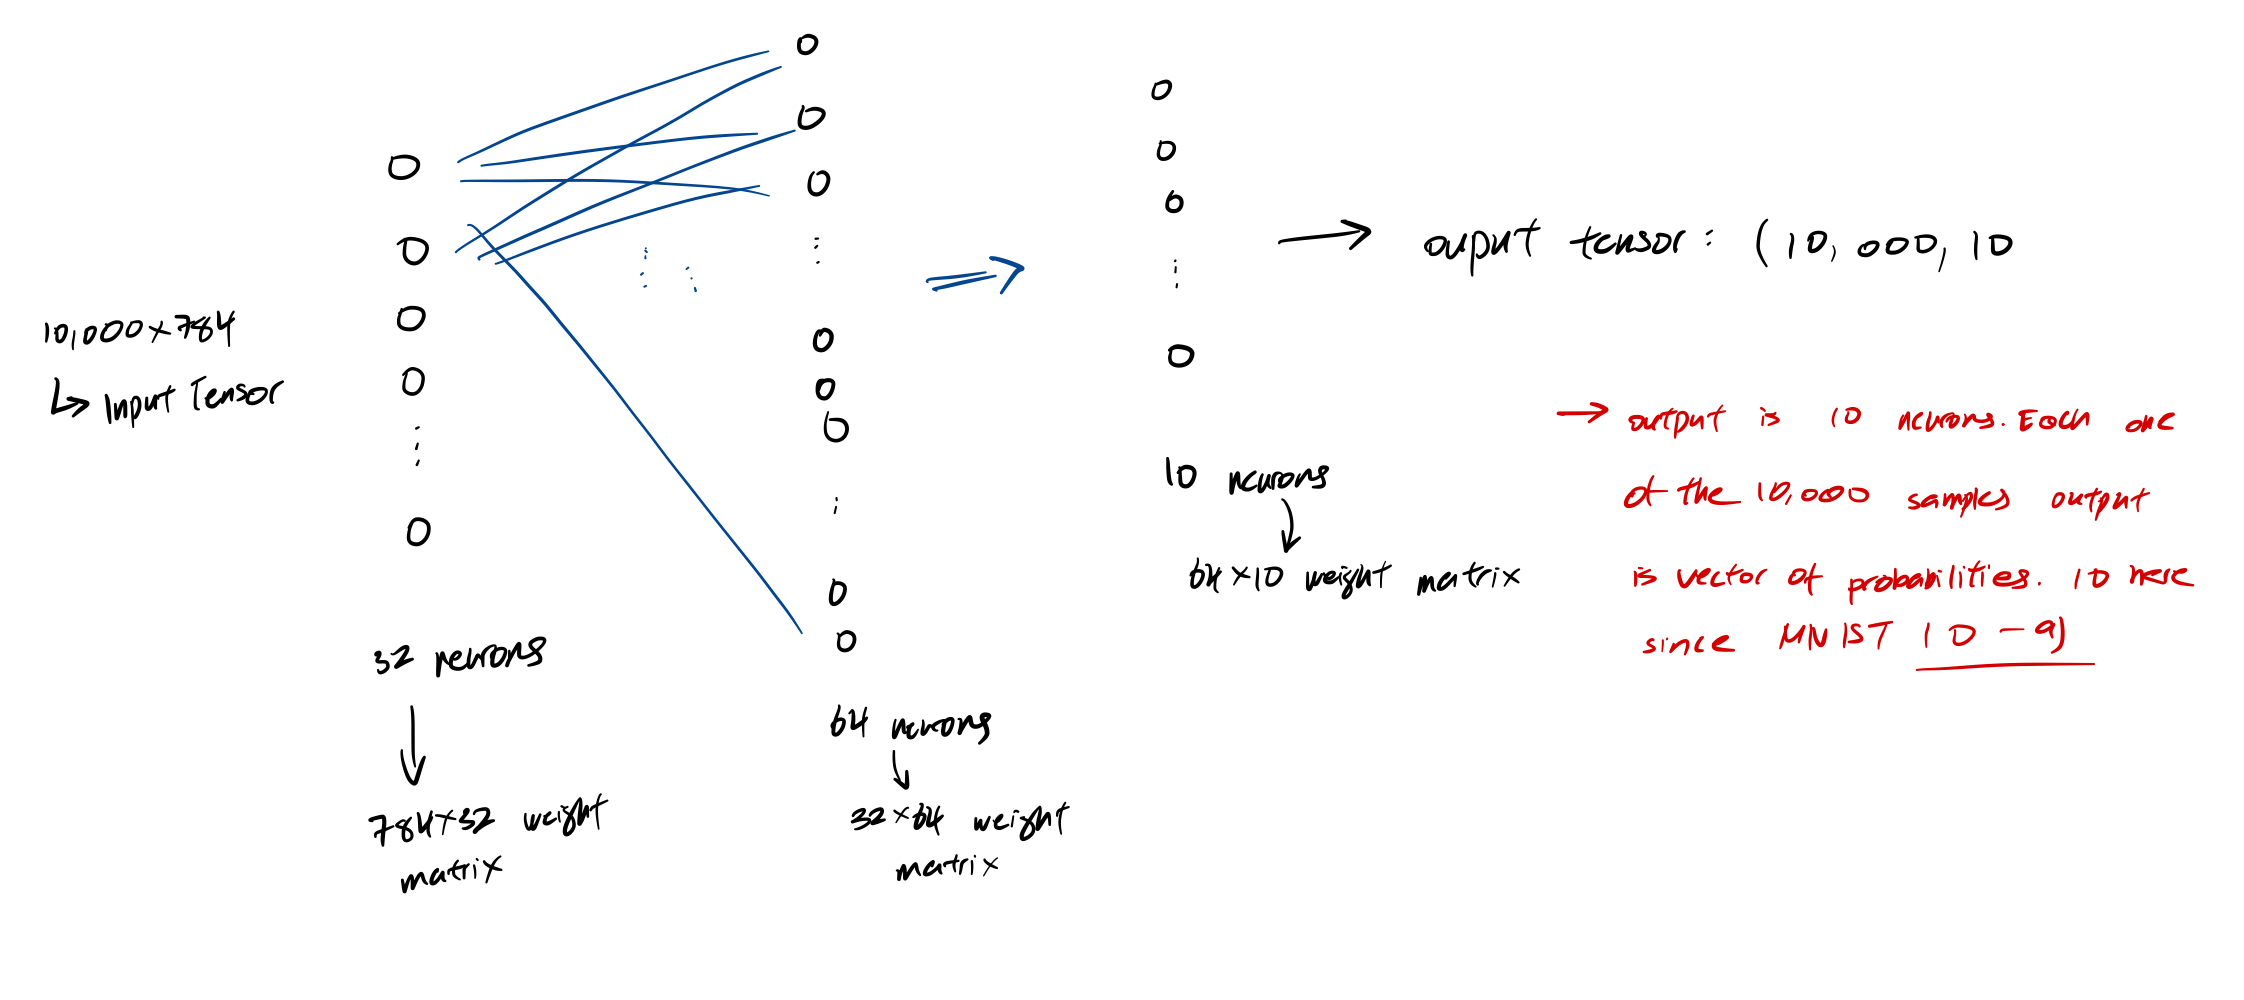 10,000×784
↳ Input Tensor
32 neurons
784×32 weight
matrix
64 neurons
32×64 weight
matrix
10 neurons
64×10 weight matrix
→ ouput tensor: (10,000, 10
→ output is 10 neurons. Each one
of the 10,000 samples output
is vector of probabilities. 10 here
since MNIST (0-9)